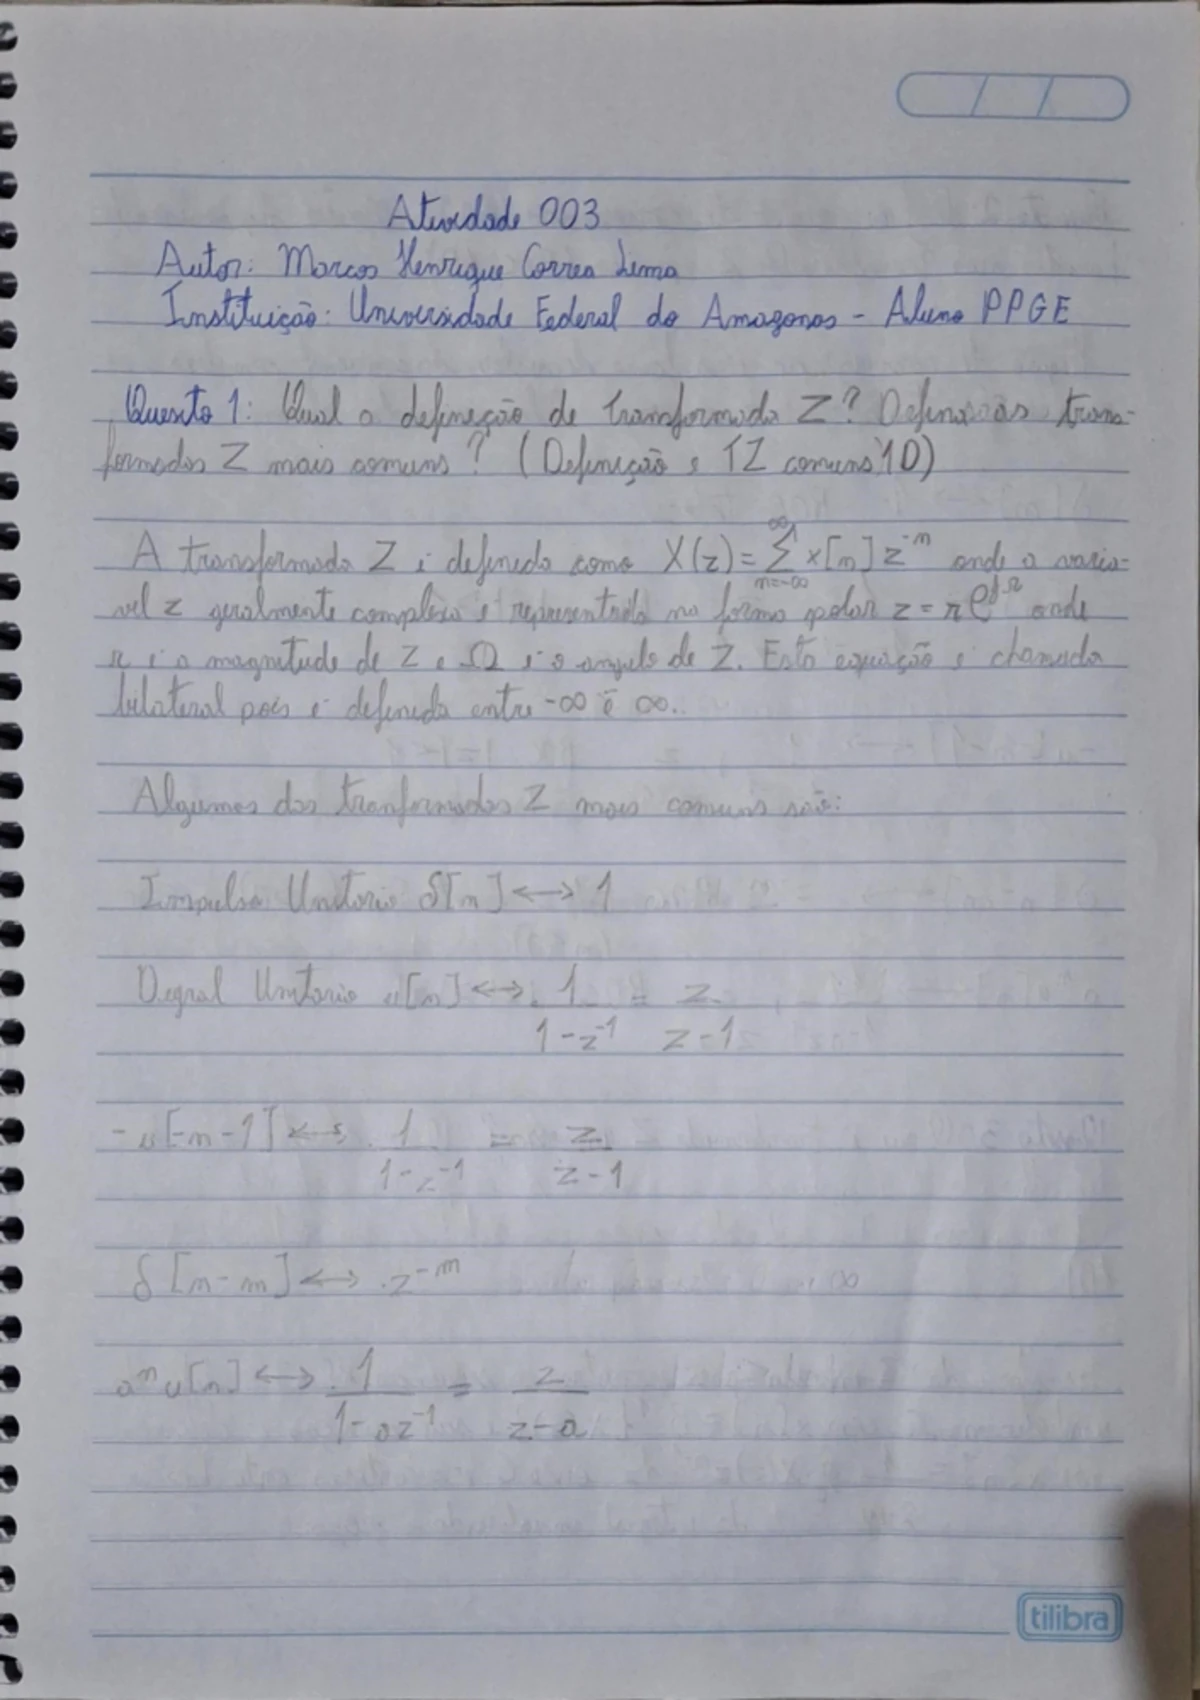 Atividade 003
Autor: Marcos Henrique Correa Lima
Instituição: Universidade Federal do Amazonas - Aluno PPGE
Questo 1: Qual a definição de transformada Z? Defina as trans-
formadas Z mais comuns? (Definição e TZ comuns 10)
A transformada Z é definida como X(z) = ∑_{n=-∞}^{∞} x[n] z^{-n} onde a variá-
vel z geralmente complexa é representada na forma polar z = r e^{jΩ} onde
r é a magnitude de z e Ω é o angulo de z. Esta equação é chamada
bilateral pois é definida entre -∞ e ∞.
Algumas das tranformadas Z mais comuns são:
Impulso Unitario δ[n] ↔ 1
Degral Unitario u[n] ↔ 1/(1-z^{-1}) = z/(z-1)
-u[-n-1] ↔ 1/(1-z^{-1}) = z/(z-1)
δ[n-m] ↔ z^{-m}
a^n u[n] ↔ 1/(1-az^{-1}) = z/(z-a)
tilibra